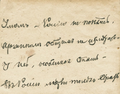 Умом - Россию не понять,
Аршином общим не измерить.
У ней особенная стать -
В Россию можно только верить.